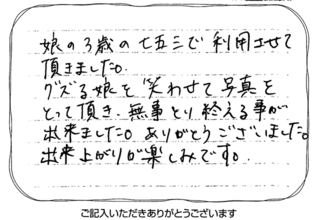 娘の3歳の七五三で利用させて
頂きました。
グズる娘を笑わせて写真を
とって頂き、無事とり終える事が
出来ました。ありがとうございました。
出来上がりが楽しみです。
ご記入いただきありがとうございます